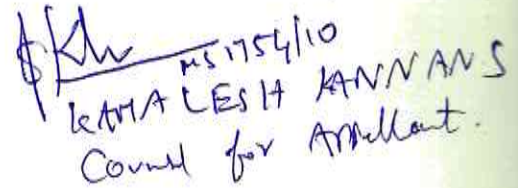 MS 1754/10
KAMALESH KANNAN S
Counsel for Appellant.